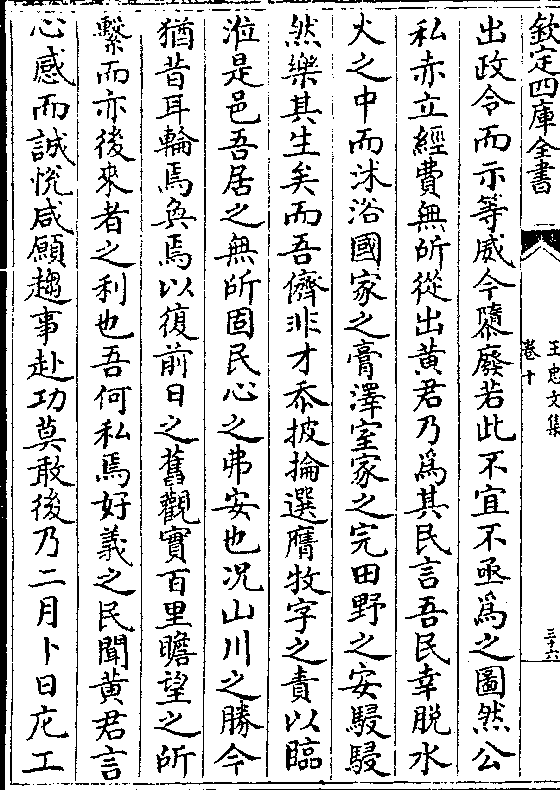 欽定四庫全書
王忠文集
卷十
三十六
出政令而示等威今隳廢若此不宜不亟爲之圖然公
私赤立經費無所從出黄君乃爲其民言吾民幸脱水
火之中而沐浴國家之膏澤室家之完田野之安駸駸
然樂其生矣而吾儕非才忝披掄選膺牧字之責以臨
涖是邑吾居之無所固民心之弗安也况山川之勝今
猶昔耳輪焉奐焉以復前日之舊觀實百里瞻望之所
繫而亦後來者之利也吾何私焉好義之民聞黄君言
心感而誠悦咸願趨事赴功莫敢後乃二月卜日庀工